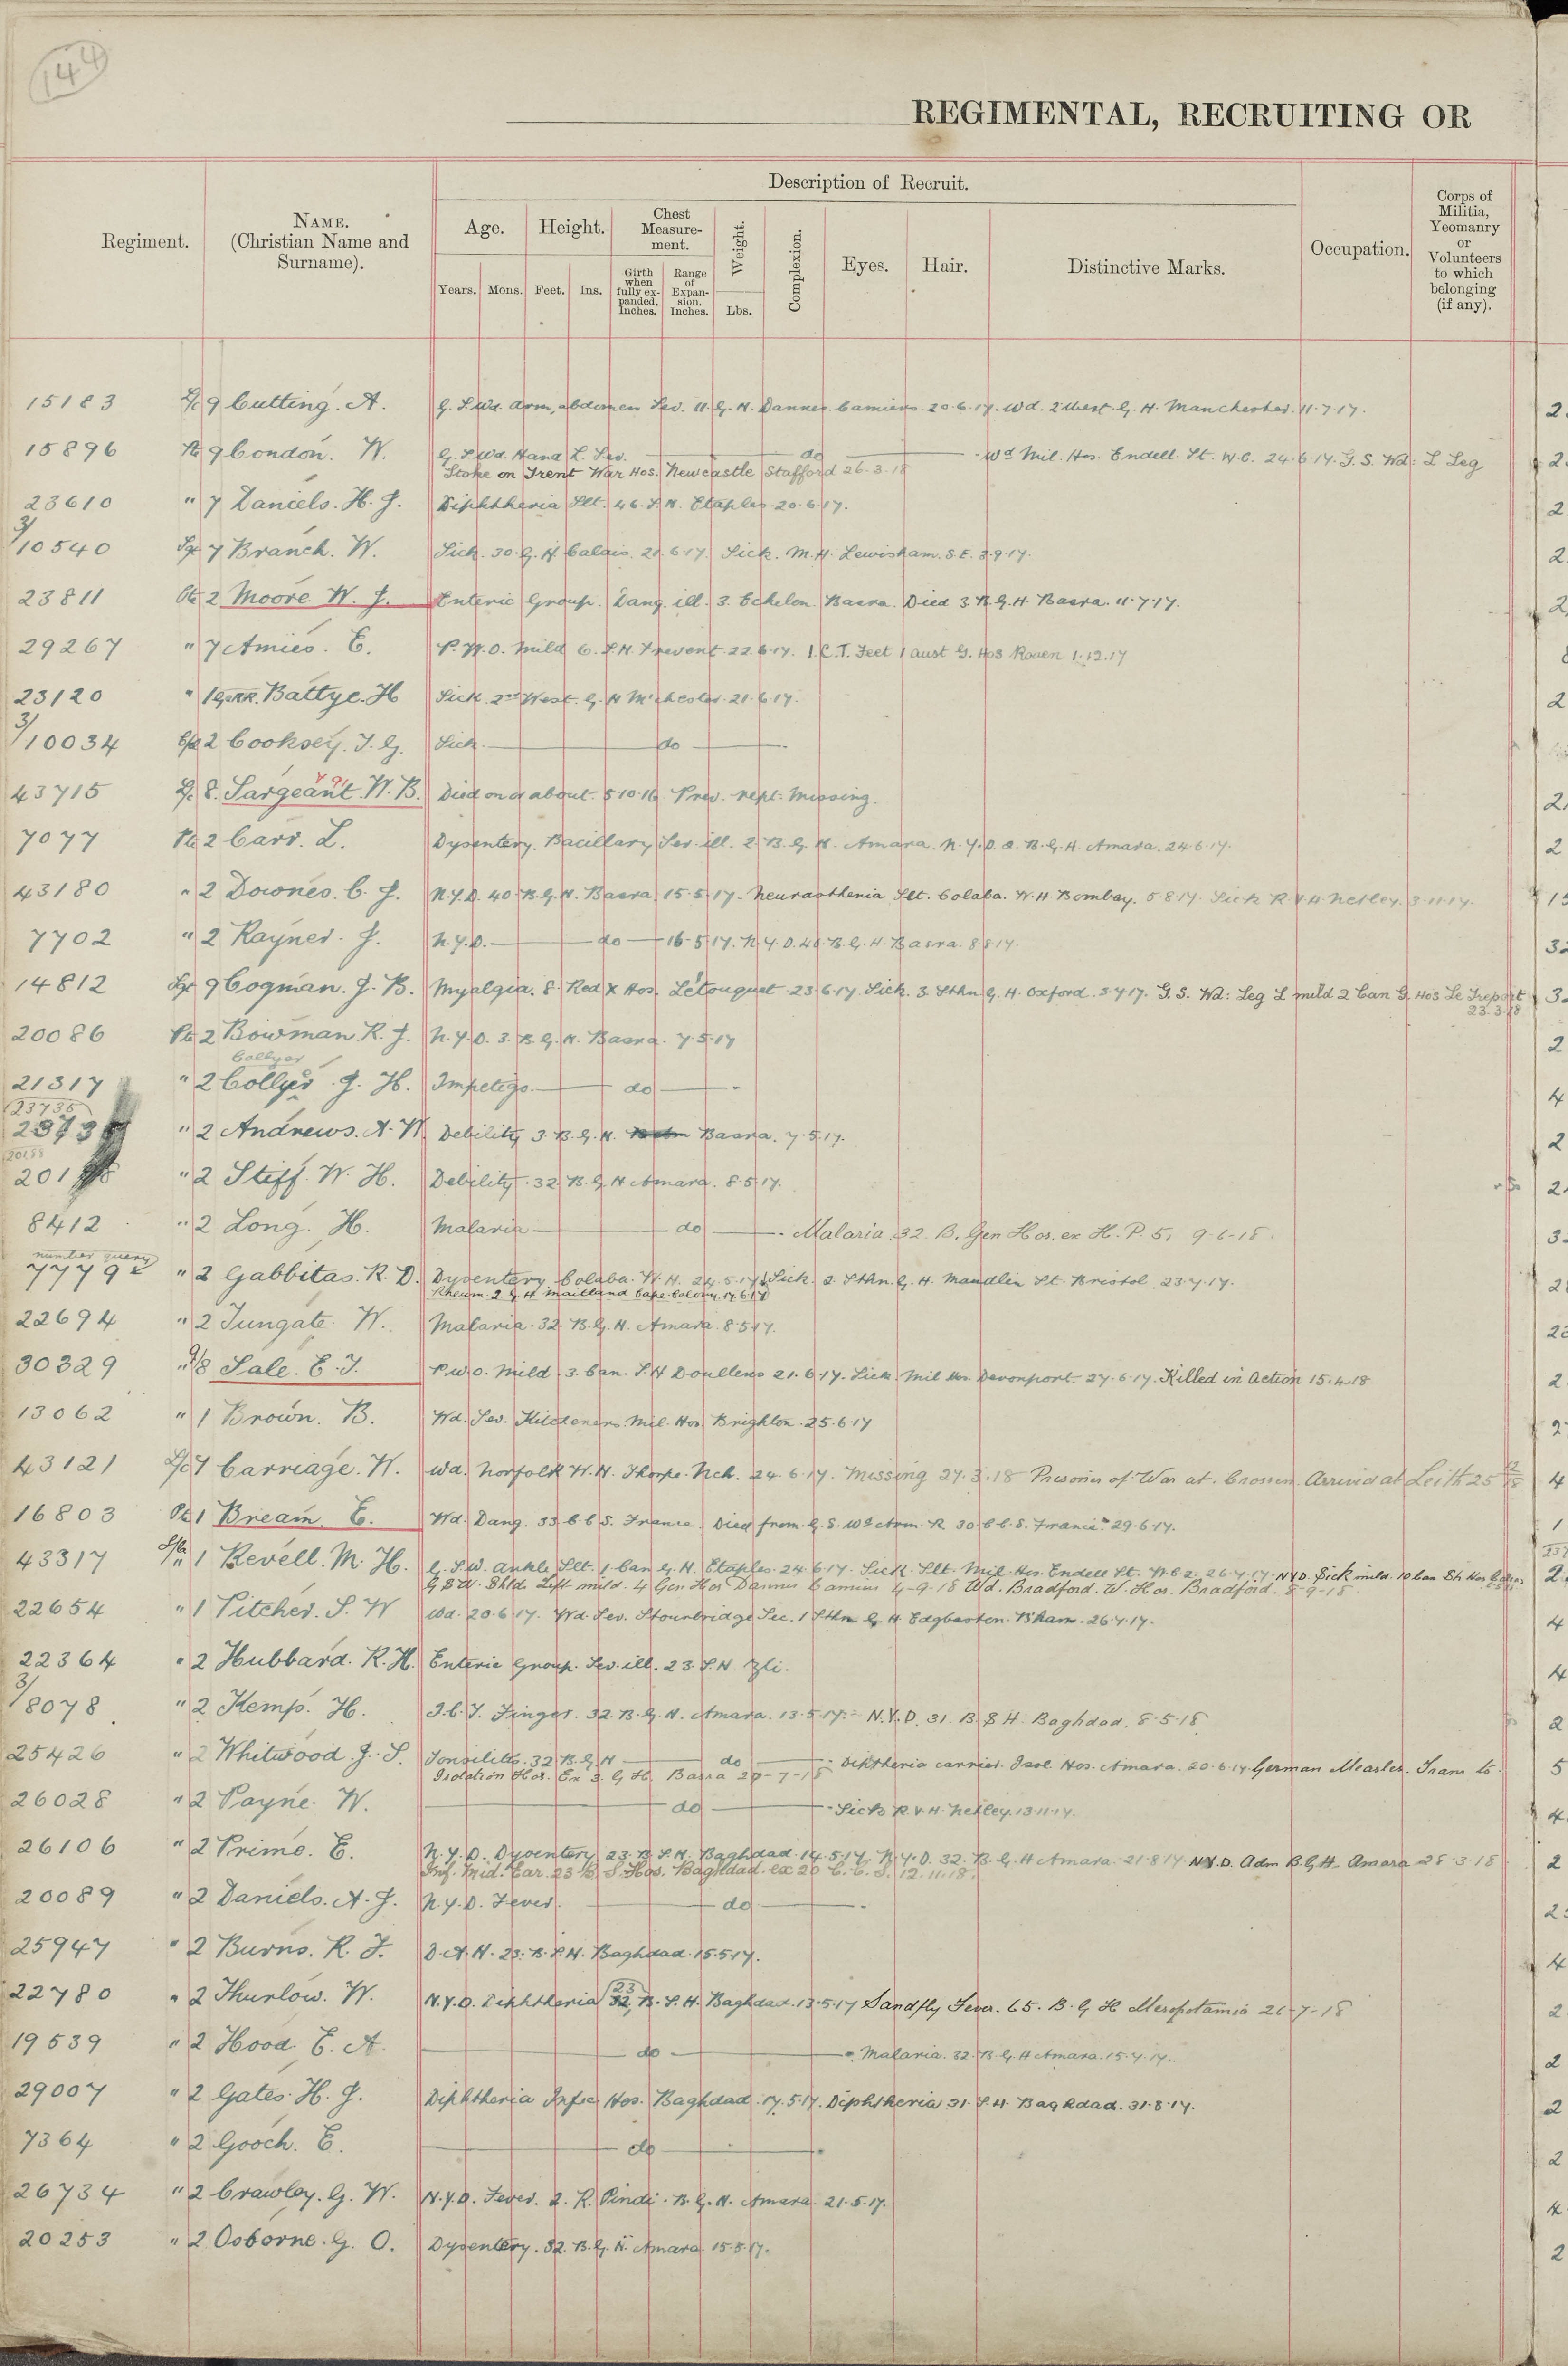 144
REGIMENTAL, RECRUITING OR
Description of Recruit.
Regiment.
NAME. (Christian Name and Surname).
Age.
Height.
Chest Measurement.
Weight.
Complexion.
Eyes.
Hair.
Distinctive Marks.
Occupation.
Corps of Militia, Yeomanry or Volunteers to which belonging (if any).
Years. Mons. Feet. Ins. Girth when fully expanded. Inches. Range of Expansion. Inches. Lbs.
15183 L/c 9 Cutting. A. G.S.Wd. arm, abdomen Sev. 11. G.H. Dannes Camiers. 20.6.17. Wd. 2 West. G.H. Manchester. 11.7.17.
15896 Pte 9 Condon. W. G.S.Wd. Hand L. Sev. do Wd Mil. Hos. Endell. St. W.C. 24.6.17. G.S. Wd: L Leg
Stoke on Trent War Hos. Newcastle Stafford 26.3.18
23610 " 7 Daniels. H. J. Diphtheria Slt. 46. S.H. Etaples. 20.6.17.
3/10540 Sgt 7 Branch. W. Sick. 30. G.H. Calais. 21.6.17. Sick. M.H. Lewisham. S.E. 3.9.17.
23811 Pte 2 Moore. W. J. Enteric Group. Dang. ill. 3. Echelon. Basra. Died 3 B.G.H. Basra. 11.7.17.
29267 " 7 Amies. E. P.U.O. mild 6. S.H. Frevent. 22.6.17. I.C.T. Feet 1 Aust G. Hos Rouen 1.12.17
23120 " 1 Garr. Battye. H Sick. 2nd West. G.H M'chester. 21.6.17.
3/10034 Cpl 2 Cooksey. T. G. Sick. do
43715 L/c 8. Sargeant. W. B. Died on or about. 5.10.16 Prev. rept. Missing.
7077 Pte 2 Carr. L. Dysentery. Bacillary Sev. ill. 2. B.G.H. Amara. N.Y.D. 2. B.G.H. Amara. 24.6.17.
43180 " 2 Downes. C. J. N.Y.D. 40. B.G.H. Basra. 15.5.17. Neurasthenia Slt. Colaba. W.H. Bombay. 5.8.17. Sick R.V.H. Netley. 3.11.17.
7702 " 2 Rayner. J. N.Y.D. do 16.5.17. N.Y.D. 40. B.G.H. Basra. 8.8.17.
14812 Sgt 9 Cogman. J. B. Myalgia. 8. Red X Hos. Letouquet. 23.6.17. Sick. 3. Sthn G.H. Oxford. 5.7.17. G.S. Wd: Leg L mild 2 Can G. Hos Le Treport
23.3.18
20086 Pte 2 Bowman. R. J. N.Y.D. 3. B.G.H. Basra. 7.5.17
Collyer
21317 " 2 Collyer. J. H. Impetigo. do
23735
23735 " 2 Andrews. A. W. Debility 3. B.G.H. Basra. 7.5.17.
20188
20188 " 2 Stiff. W. H. Debility. 32. B.G.H Amara. 8.5.17.
8412 " 2 Long. H. Malaria do Malaria. 32. B. Gen Hos. ex H. P. 5, 9-6-18.
number query
7779 " 2 Gabbitas. R. D. Dysentery. Colaba. W.H. 24.5.17. Sick. 2. Sthn. G.H. Maudlin St. Bristol. 23.7.17.
Rheum. 2. G.H. Maitland Cape Colony. 17.6.17
22694 " 2 Tungate. W. Malaria. 32. B.G.H. Amara. 8.5.17.
30329 " 9/8 Sale. E. T. P.U.O. mild. 3. Can. S.H Doullens 21.6.17. Sick Mil Hos. Devonport. 27.6.17. Killed in Action 15.4.18
13062 " 1 Brown. B. Wd. Sev. Kitcheners. Mil. Hos. Brighton. 25.6.17
43121 L/c 7 Carriage. W. Wd. Norfolk W.H. Thorpe. Nch. 24.6.17. Missing 27.3.18 Prisoner of War at. Crossen. Arrived at Leith 25
16803 Pte 1 Bream. E. Wd. Dang. 33 C.C.S. France. Died from G.S. Wd Arm. R. 30 C.C.S. France. 29.6.17.
43317 " 1 Revell. M. H. G.S.W. Ankle Slt. 1. Can G.H. Etaples. 24.6.17. Sick. Slt. Mil. Hos. Endell St. W.C.2. 26.7.17. N.Y.D. Sick mild. 10 Can St. Hos
G.S.W. Shld Left mild. 4 Gen. Hos Dannes Camiers 4-9-18 Wd. Bradford. W. Hos. Bradford. 8-9-18
22654 " 1 Pitcher. S. W Wd. 20.6.17. Wd. Sev. Stourbridge Sec. 1 Sthn G.H Edgbaston. B'ham. 26.7.17.
22364 " 2 Hubbard. R. H. Enteric Group. Sev. ill. 23. S.H.
3/8078 " 2 Kemp. H. I.C.T. Finger. 32. B.G.H. Amara. 13.5.17. N.Y.D. 31. B S H. Baghdad. 8.5.18.
25426 " 2 Whitwood. J. S. Tonsilitis. 32 B.G.H do Diphtheria carrier. Isol. Hos. Amara. 20.6.17. German Measles. Trans to
Isolation Hos. Ex 3. G.H. Basra 29-7-18
26028 " 2 Payne. W. do Sick R.V.H. Netley. 13.11.17.
26106 " 2 Prime. E. N.Y.D. Dysentery 23. B.S.H. Baghdad. 14.5.17. N.Y.D. 32. B.G.H Amara. 21.8.17. N.Y.D. Adm B.G.H. Amara 28.3.18
Inf. Mid. Ear. 23 B. S. Hos. Baghdad. ex 20 C.C.S. 12.11.18.
20089 " 2 Daniels. A. J. N.Y.D. Fever. do
25947 " 2 Burns. R. J. D.A.H. 23. B.S.H. Baghdad. 15.5.17.
22780 " 2 Thurlow. W. N.Y.D. Diphtheria 23 32 B.S.H. Baghdad. 13.5.17 Sandfly Fever. 65. B.G H Mesopotamia 26-7-18
19539 " 2 Hood. E. A. do Malaria. 32. B.G.H Amara. 15.7.17.
29007 " 2 Gates. H. J. Diphtheria Infec Hos. Baghdad. 17.5.17. Diphtheria 31. S.H. Baghdad. 31.8.17.
7364 " 2 Gooch. E. do
26734 " 2 Crawley. G. W. N.Y.D. Fever. 2. R. Pindi. B.G.H. Amara. 21.5.17.
20253 " 2 Osborne. G. O. Dysentery. 32. B.G.H. Amara. 15.5.17.